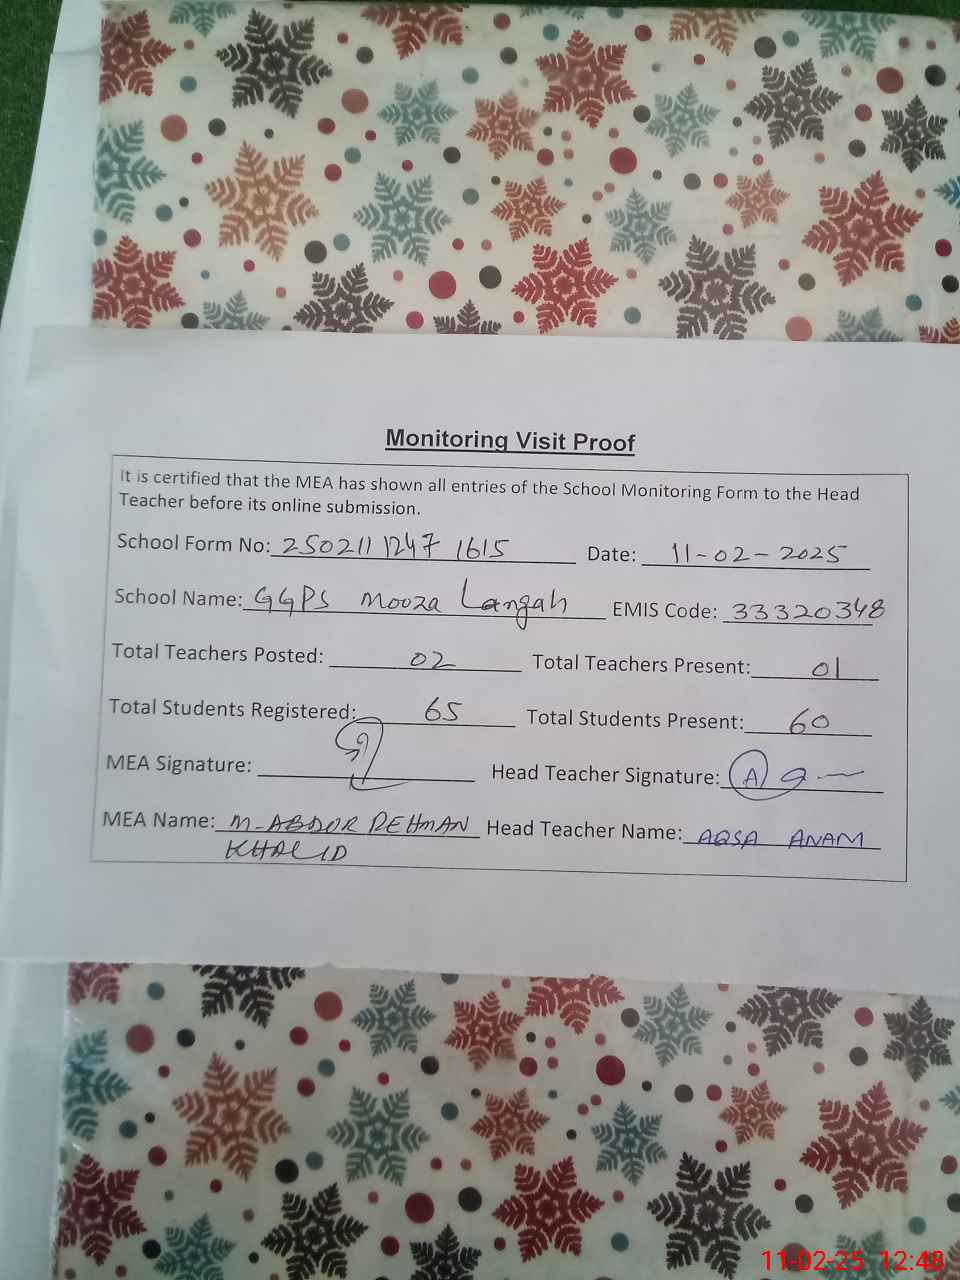 Monitoring Visit Proof
It is certified that the MEA has shown all entries of the School Monitoring Form to the Head
Teacher before its online submission.
School Form No: 2502111247 1615 Date: 11-02-2025
School Name: GGPS Mooza Langah EMIS Code: 33320348
Total Teachers Posted: 02 Total Teachers Present: 01
Total Students Registered: 65 Total Students Present: 60
MEA Signature: Head Teacher Signature:
MEA Name: M-ABDUR REHMAN Head Teacher Name: AQSA ANAM
KHALID
11-02-25 12:48